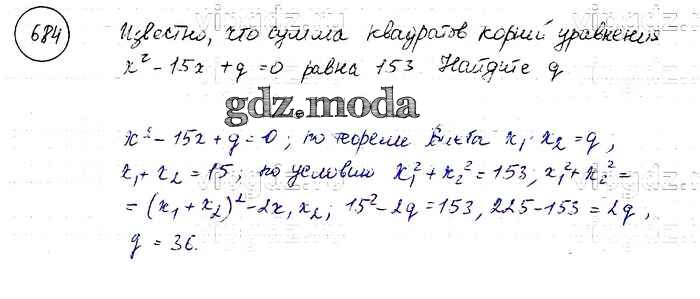 684
Известно, что сумма квадратов корний уравнения
x² - 15x + q = 0 равна 153. Найдите q
gdz.moda
x² - 15x + q = 0; по теореме Виета x₁ · x₂ = q,
x₁ + x₂ = 15; по условию x₁² + x₂² = 153, x₁² + x₂² =
= (x₁ + x₂)² - 2x₁x₂; 15² - 2q = 153, 225 - 153 = 2q,
q = 36.